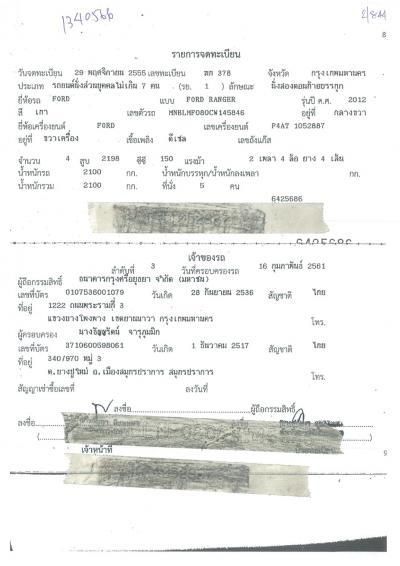 1340566
2/844
8
รายการจดทะเบียน
วันจดทะเบียน 29 พฤศจิกายน 2555 เลขทะเบียน ฆก 378 จังหวัด กรุงเทพมหานคร
ประเภท รถยนต์นั่งส่วนบุคคลไม่เกิน 7 คน (รย. 1 ) ลักษณะ นั่งสองตอนท้ายบรรทุก
ยี่ห้อรถ FORD แบบ FORD RANGER รุ่นปี ค.ศ. 2012
สี เทา เลขตัวรถ MNBLMF080CW145846 อยู่ที่ กลางขวา
ยี่ห้อเครื่องยนต์ FORD เลขเครื่องยนต์ P4AT 1052887
อยู่ที่ ขวาเครื่อง เชื้อเพลิง ดีเซล เลขถังแก๊ส
จำนวน 4 สูบ 2198 ซีซี 150 แรงม้า 2 เพลา 4 ล้อ ยาง 4 เส้น
น้ำหนักรถ 2100 กก. น้ำหนักบรรทุก/น้ำหนักลงเพลา กก.
น้ำหนักรวม 2100 กก. ที่นั่ง 5 คน
6425686
6425686
เจ้าของรถ
ลำดับที่ 3 วันที่ครอบครองรถ 16 กุมภาพันธ์ 2561
ผู้ถือกรรมสิทธิ์ ธนาคารกรุงศรีอยุธยา จำกัด (มหาชน)
เลขที่บัตร 0107536001079 วันเกิด 28 กันยายน 2536 สัญชาติ ไทย
ที่อยู่ 1222 ถนนพระรามที่ 3
แขวงบางโพงพาง เขตยานนาวา กรุงเทพมหานคร โทร.
ผู้ครอบครอง จารุภูมมิก
เลขที่บัตร 3710600598061 วันเกิด 1 ธันวาคม 2517 สัญชาติ ไทย
ที่อยู่ 340/970 หมู่ 3
ต.บางปูใหม่ อ.เมืองสมุทรปราการ สมุทรปราการ โทร.
สัญญาเช่าซื้อเลขที่ ลงวันที่
ลงชื่อ ผู้ถือกรรมสิทธิ์
ลงชื่อ
เจ้าหน้าที่
9